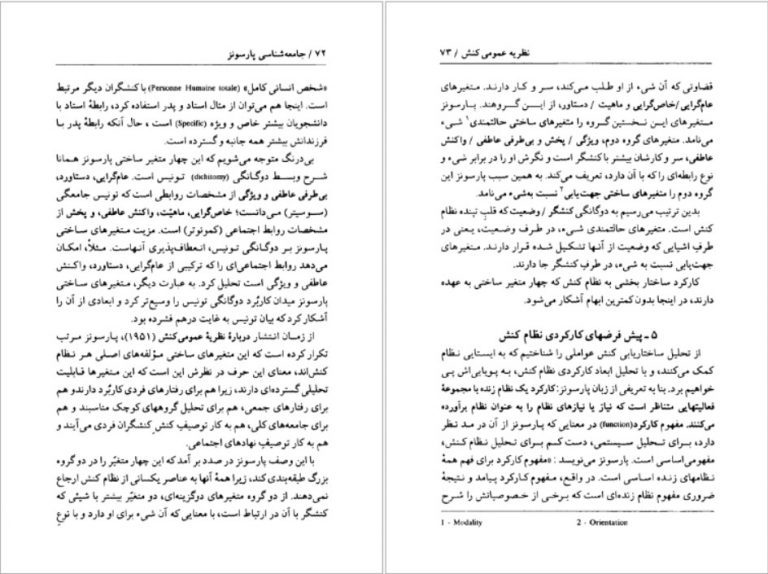 ۷۲ / جامعه‌شناسی پارسونز
«شخص انسانی کامل» (Personne Humaine totale) با کنشگران دیگر مرتبط
است. اینجا هم می‌توان از مثال استاد و پدر استفاده کرد، رابطهٔ استاد با
دانشجویان بیشتر خاص و ویژه (Specific) است ، حال آنکه رابطهٔ پدر با
فرزندانش بیشتر همه جانبه و گسترده است.
بی‌درنگ متوجه می‌شویم که این چهار متغیر ساختی پارسونز همانا
شرح وبسط دوگانگی (dichitomy) تونیس است. عام‌گرایی، دستاورد،
بی‌طرفی عاطفی و ویژگی از مشخصات روابطی است که تونیس جامعگی
(سوسیتر) می‌دانست؛ خاص‌گرایی، ماهیّت، واکنش عاطفی، و پخش از
مشخصات روابط اجتماعی (کمونوتر) است. مزیت متغیرهای ساختی
پارسونز بر دوگانگی تونیس، انعطاف‌پذیری آنهاست. مثلاً، امکان
می‌دهد روابط اجتماعی‌ای را که ترکیبی از عام‌گرایی، دستاورد، واکنش
عاطفی و ویژگی است تحلیل کرد. به عبارت دیگر، متغیرهای ساختی
پارسونز میدان کاربُرد دوگانگی تونیس را وسیع‌تر کرد و ابعادی از آن را
آشکار کرد که بیان تونیس به غایت درهم فشرده بود.
از زمان انتشار دربارهٔ نظریهٔ عمومی‌کنش (۱۹۵۱)، پارسونز مرتب
تکرار کرده است که این متغیرهای ساختی مؤلفه‌های اصلی هر نظام
کنش‌اند، معنای این حرف در نظرش این است که این متغیرها قابلیت
تحلیلی گسترده‌ای دارند، زیرا هم برای رفتارهای فردی کاربُرد دارندو هم
برای رفتارهای جمعی، هم برای تحلیل گروههای کوچک مناسبند و هم
برای جامعه‌های کلی، هم به کار توصیفِ کنش کنشگران فردی می‌آیند و
هم به کار توصیفِ نهادهای اجتماعی.
با این وصف پارسونز در صدد بر آمد که این چهار متغیّر را در دو گروه
بزرگ طبقه‌بندی کند، زیرا همهٔ آنها به عناصر یکسانی از نظام کنش ارجاع
نمی‌دهند. از دو گروه متغیرهای دوگزینه‌ای، دو متغیّر بیشتر با شیئی که
کنشگر با آن در ارتباط است، با معنایی که آن شیء برای او دارد و با نوعِ
نظریه عمومی کنش / ۷۳
قضاوتی که آن شیء از او طلب می‌کند، سر و کار دارند. متغیرهای
عام‌گرایی/خاص‌گرایی و ماهیت / دستاور، از این گروهند. پارسونز
متغیرهای این نخستین گروه را متغیرهای ساختی حالتمندی۱ شیء
می‌نامد. متغیرهای گروه دوم، ویژگی / پخش و بی‌طرفی عاطفی / واکنش
عاطفی، سر و کارشان بیشتر با کنشگر است و نگرش او را در برابر شیء و
نوع رابطه‌ای را که با آن دارد، تعریف می‌کند. به همین سبب پارسونز این
گروه دوم را متغیرهای ساختی جهت‌یابی۲ نسبت به‌شیء می‌نامد.
بدین ترتیب می‌رسیم به دوگانگی کنشگر / وضعیت که قلبِ تپندهٔ نظام
کنش است. متغیرهای حالتمندی شیء، در طرف وضعیت، یعنی در
طرفِ اشیایی که وضعیت از آنها تشکیل شده قرار دارند. متغیرهای
جهت‌یابی نسبت به شیء، در طرفِ کنشگر جا دارند.
کارکرد ساختار بخشی به نظام کنش که چهار متغیر ساختی به عهده
دارند، در اینجا بدون کمترین ابهام آشکار می‌شود.
۵ ـ پیش فرضهای کارکردی نظام کنش
از تحلیل ساختاریابی کنش عواملی را شناختیم که به ایستایی نظام
کمک می‌کنند، و با تحلیل ابعاد کارکردی نظام کنش، به پویایی‌اش پی
خواهیم برد. بنا به تعریفی از زبان پارسونز: کارکرد یک نظام زنده با مجموعهٔ
فعالیتهایی متناظر است که نیاز یا نیازهای نظام را به عنوان نظام برآورده
می‌کنند. مفهوم کارکرد(function) در معنایی که پارسونز از آن در مد نظر
دارد، برای تحلیل سیستمی، دست کسم برای تحلیل نظام کنش،
مفهومی‌اساسی است. پارسونز می‌نویسد : «مفهوم کارکرد برای فهم همهٔ
نظامهای زنده اساسی است. در واقع، مفهوم کارکرد پیامد و نتیجهٔ
ضروری مفهوم نظام زنده‌ای است که برخی از خصوصیاتش را شرح
1 - Modality
2 - Orientation